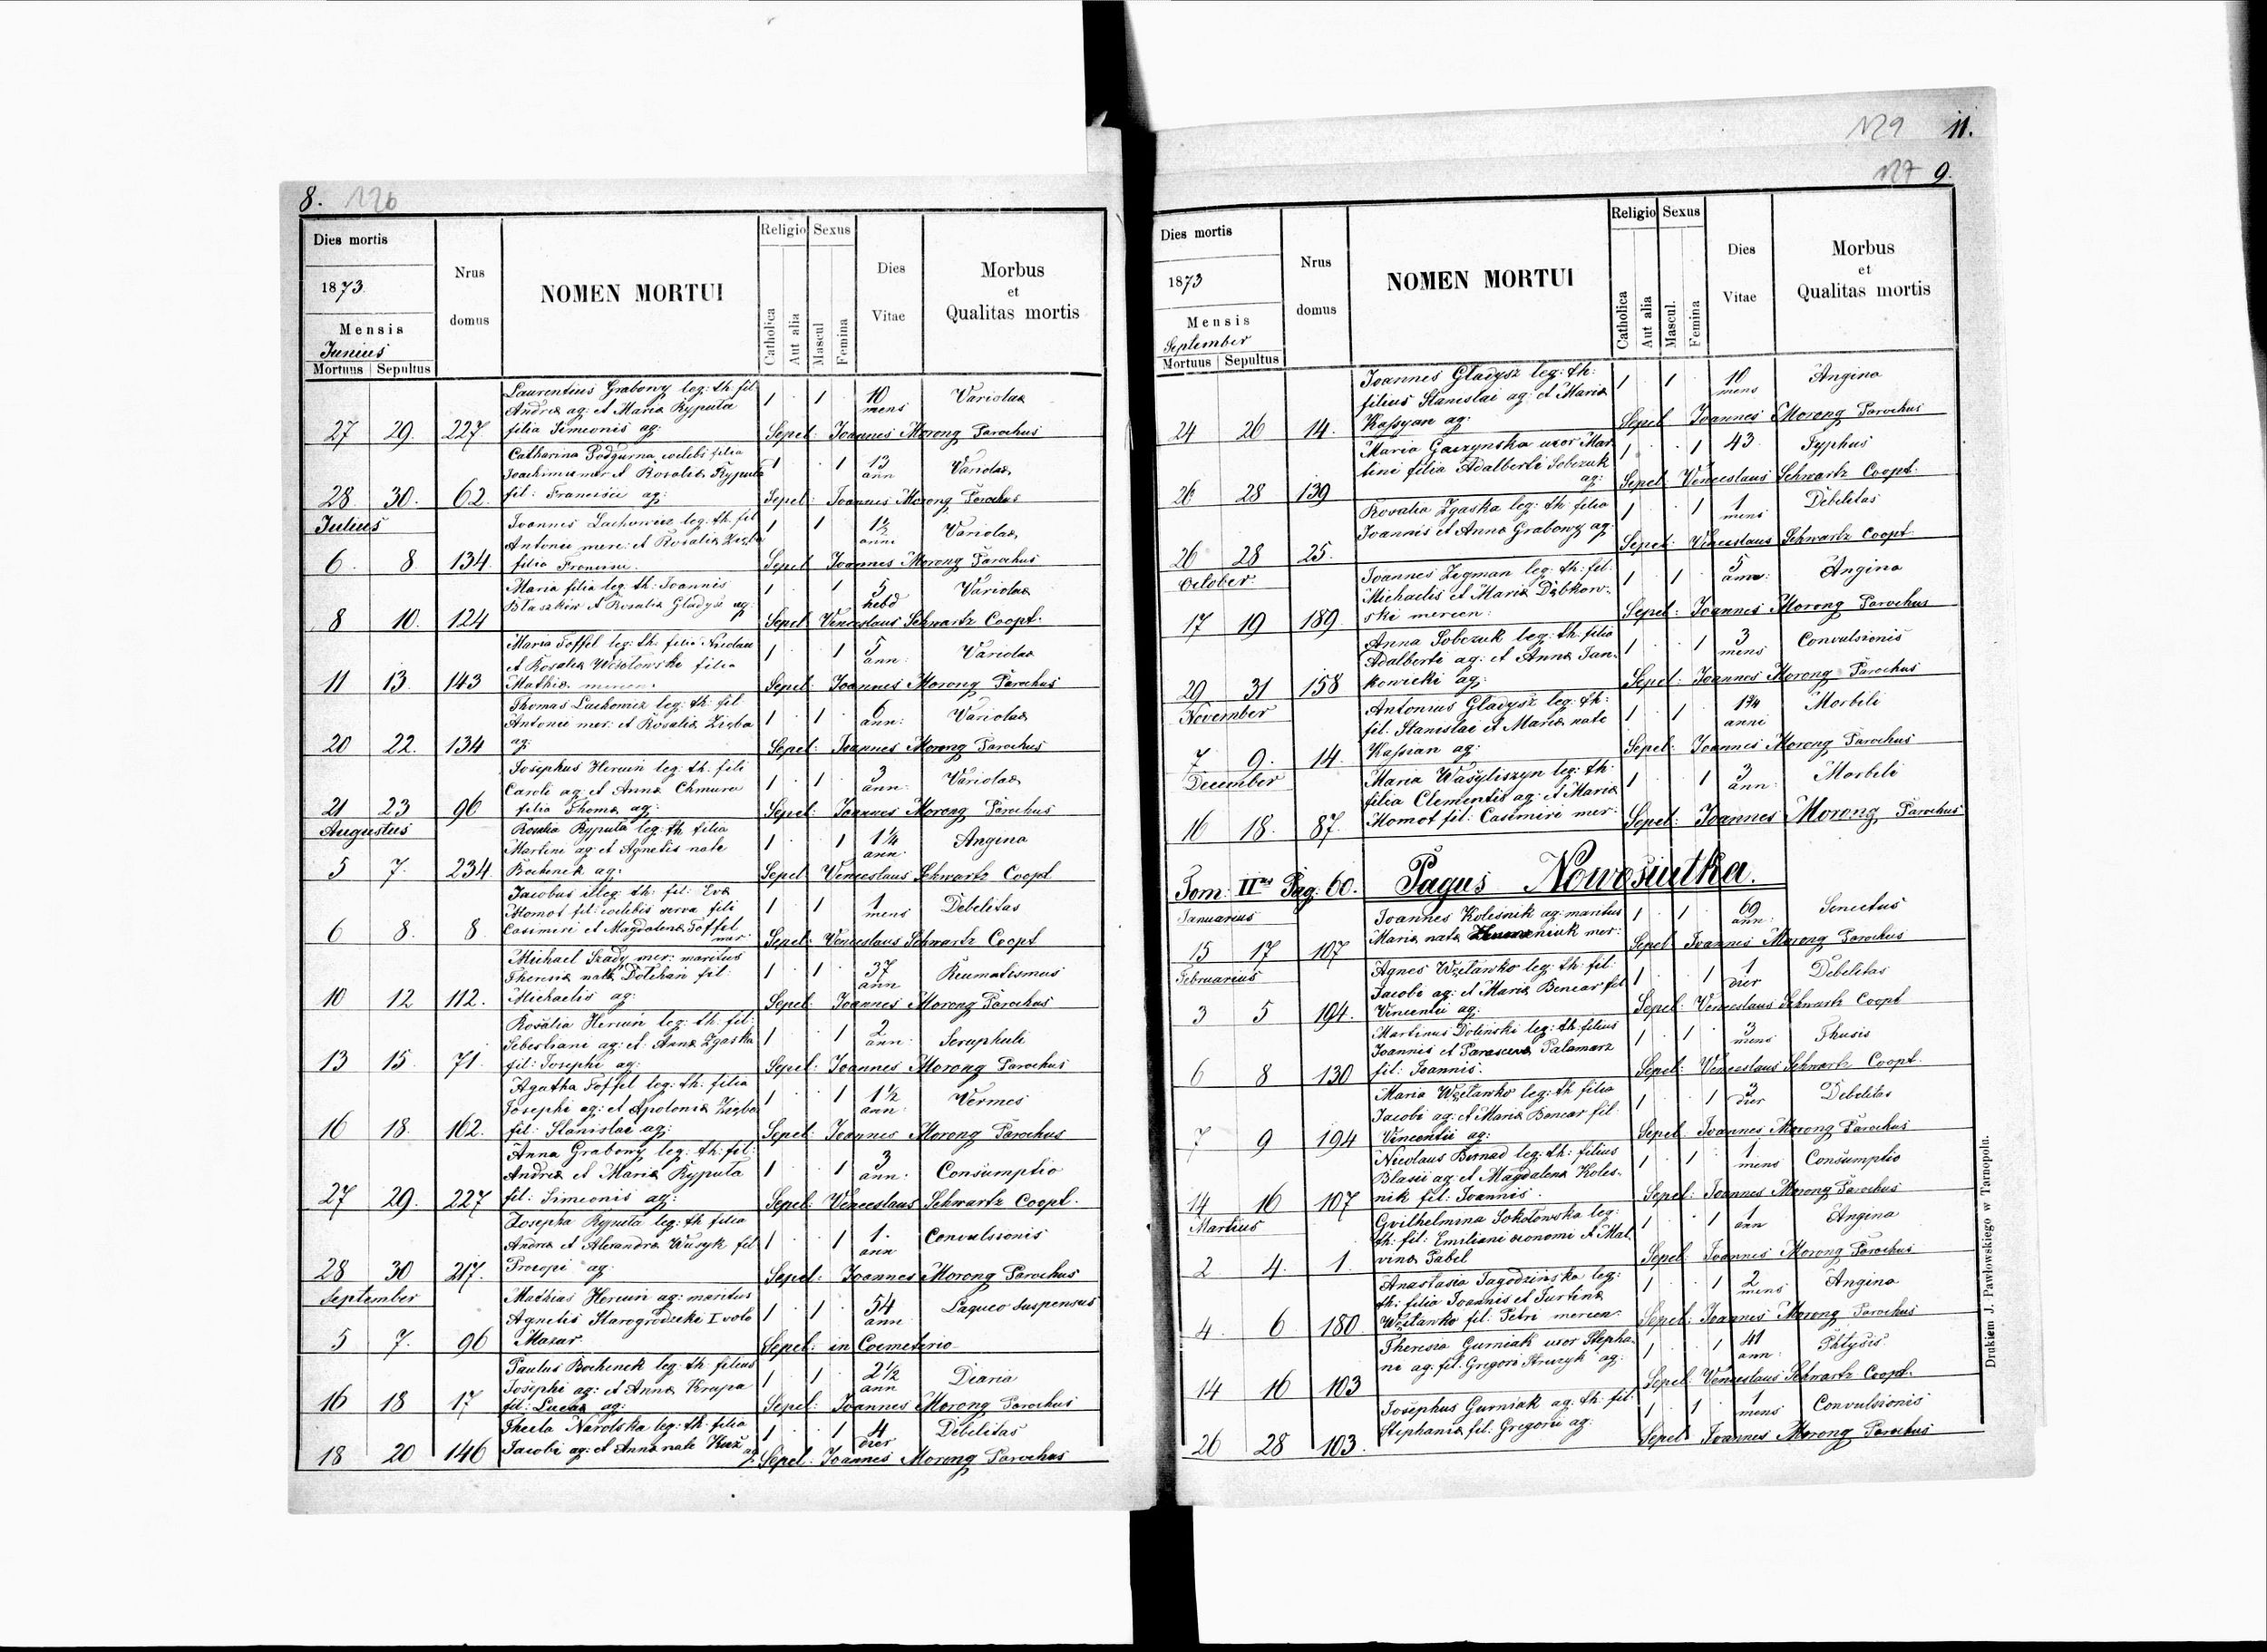 8. 126
Dies mortis
1873.
Mensis
Junius
Mortuus Sepultus
Nrus
domus
NOMEN MORTUI
Religio
Catholica
Aut alia
Sexus
Mascul
Femina
Dies
Vitae
Morbus
et
Qualitas mortis
Laurentius Grabowy leg: th. fil:
Andreæ ag: et Mariæ Ryputa
filia Simeonis ag:
27 29. 227 1 1 10 mens Variolae
Sepel: Joannes Morong Parochus
Catharina Podgurna coelebs filia
Joachimi mer: et Rosaliæ Ryputa
fil: Francisci ag:
28. 30. 62. 1 1 13 ann Variolae
Sepel: Joannes Morong Parochus
Julius
Joannes Lachowicz leg: th. fil
Antonii merc: et Rosaliæ Zięba
filia Francisci.
6. 8. 134. 1 1 1½ anni Variolae
Sepel: Joannes Morong Parochus
Maria filia leg: th: Joannis
Błaszkiw et Rosaliæ Gładysz ag:
8 10. 124 1 1 5 hebd Variolae
Sepel: Venceslaus Schwartz Coopt.
Maria Toffel leg: th. filia Nicolai
et Rosaliæ Wesołowski filia
Mathiæ mercen.
11 13. 143 1 1 5 ann: Variolae
Sepel: Joannes Morong Parochus
Thomas Lachowicz leg: th: fil:
Antonii mer: et Rosaliæ Zięba
ag:
20 22. 134 1 1 6 ann: Variolae
Sepel: Joannes Morong Parochus
Josephus Hercuń leg: th. fili
Caroli ag: et Annæ Chmura
filia Thomæ ag:
21 23 96 1 1 3 ann: Variolae
Sepel: Joannes Morong Parochus
Augustus
Rosalia Ryputa leg: th. filia
Martini ag: et Agnetis nata
Bochenek ag:
5 7. 234. 1 1 1¼ ann. Angina
Sepel: Venceslaus Schwartz Coopt
Jacobus illeg: th: fil: Evæ
Momot fil: coelebis serva fili
Casimiri et Magdalenæ Toffel
mer:
6 8. 8 1 1 1 mens Debelitas
Sepel: Venceslaus Schwartz Coopt
Michael Szady mer: maritus
Theresiæ natæ Dolihan fil:
Michaelis ag:
10 12 112. 1 1 37 ann Reumatismus
Sepel: Joannes Morong Parochus
Rosalia Hercuń leg: th: fil:
Sebestiani ag: et Annæ Zgaska
fil: Josephi ag:
13 15. 71. 1 1 2 ann: Scruphuli
Sepel: Joannes Morong Parochus
Agatha Toffel leg: th. filia
Josephi ag: et Apoloniæ Zięba
fil: Stanislai ag:
16 18. 162. 1 1 1½ ann: Vermes
Sepel: Joannes Morong Parochus
Anna Grabowy leg: th: fil:
Andreæ et Mariæ Ryputa
fil: Simeonis ag:
27 29. 227 1 1 3 ann: Consumptio
Sepel: Venceslaus Schwartz Coopt.
Josepha Ryputa leg: th filia
Andreæ et Alexandræ Wusyk fil
Procopi ag:
28 30 217. 1 1 1. ann Convulsionis
Sepel: Joannes Morong Parochus
September
Mathias Hercuń ag: maritus
Agnetis Starogrodzcki I voto
Mazur
5 7. 96 1 1 54 ann Laqueo suspensus
Sepel: in Coemeterio
Paulus Bochenek leg: th filius
Josephi ag: et Annæ Krupa
fil: Lucæ ag:
16 18 17 1 1 2½ ann Diaria
Sepel: Joannes Morong Parochus
Thecla Narolska leg: th: filia
Jacobi ag: et Annæ nate Kuz ag:
18 20 146 1 1 4 dier Debelitas
Sepel: Joannes Morong Parochus
129 11.
127 9.
Dies mortis
1873
Mensis
September
Mortuus Sepultus
Nrus
domus
NOMEN MORTUI
Religio
Catholica
Aut alia
Sexus
Mascul.
Femina
Dies
Vitae
Morbus
et
Qualitas mortis
Joannes Gładysz leg: th:
filius Stanislai ag: et Mariæ
Kassyan ag:
24 26 14. 1 1 10 mens Angina
Sepel: Joannes Morong Parochus
Maria Gaczynska uxor Mar
tini filia Adalberti Sobczuk
ag:
26 28 139 1 1 43. Typhus
Sepel: Venceslaus Schwartz Coopt.
Rosalia Zgaska leg: th filia
Joannis et Annæ Grabowy ag:
26 28 25. 1 1 1 mens Debelitas
Sepel: Venceslaus Schwartz Coopt
October.
Joannes Zegman leg: th: fil:
Michaelis et Mariæ Dąbkow-
ski mercen:
17 19 189. 1 1 5 ann: Angina
Sepel: Joannes Morong Parochus
Anna Sobczuk leg: th: filia
Adalberti ag: et Annæ Jan-
kowicki ag:
29 31 158 1 1 3 mens Convulsionis
Sepel: Joannes Morong Parochus
November
Antonius Gładysz leg: th:
fil. Stanislai et Mariæ nate
Kassian ag:
7 9. 14. 1 1 1¾ anni Morbili
Sepel: Joannes Morong Parochus
December
Maria Wasyliszyn leg: th:
filia Clementis ag: et Mariæ
Momot fil: Casimiri mer:
16 18. 87. 1 1 3 ann: Morbili
Sepel: Joannes Morong Parochus
Tom: IIus Pag: 60. Pagus Nowosiutka.
Januarius
Joannes Kolesnik ag: maritus
Mariæ natæ mer:
15 17 107 1 1 69 ann: Senectus
Sepel: Joannes Morong Parochus
Februarius
Agnes Wzelawko leg: th: fil:
Jacobi ag: et Mariæ Bencar fil
Vincentii ag:
3 5 194. 1 1 1 dier Debelitas
Sepel: Venceslaus Schwartz Coopt
Martinus Dolinski leg: th: filius
Joannis et Parascevæ Palamarz
fil: Joannis.
6 8 130 1 1 3 mens Thusis
Sepel: Venceslaus Schwartz Coopt.
Maria Wzelawko leg: th filia
Jacobi ag: et Mariæ Bencar fil.
Vincentii ag:
7 9 194 1 1 3 dier Debelitas
Sepel: Joannes Morong Parochus
Nicolaus Birnad leg: th: filius
Blasii ag: et Magdalenæ Koles-
nik fil: Joannis.
14 16 107 1 1 1 mens Consumptio
Sepel: Joannes Morong Parochus
Martius
Gvilhelmina Sokołowska leg:
th: fil: Emiliani oconomi et Mal
vinæ Pabel
2 4. 1. 1 1 1 ann Angina
Sepel: Joannes Morong Parochus
Anastasia Jagodzinska leg:
th: filia Joannis et Justinæ
Wzelawko fil: Petri mercen.
4. 6 180. 1 1 2 mens Angina
Sepel: Joannes Morong Parochus
Theresia Gurniak uxor Stepha-
ni ag: fil: Gregori Struzyk ag:
14 16 103 1 1 41 ann: Phtysis
Sepel: Venceslaus Schwartz Coopt.
Josephus Gurniak ag: th: fil:
Stephaniæ fil: Gregorii ag:
26 28 103. 1 1 1 mens Convulsionis
Sepel: Joannes Morong Parochus
Drukiem J. Pawłowskiego w Tarnopolu.